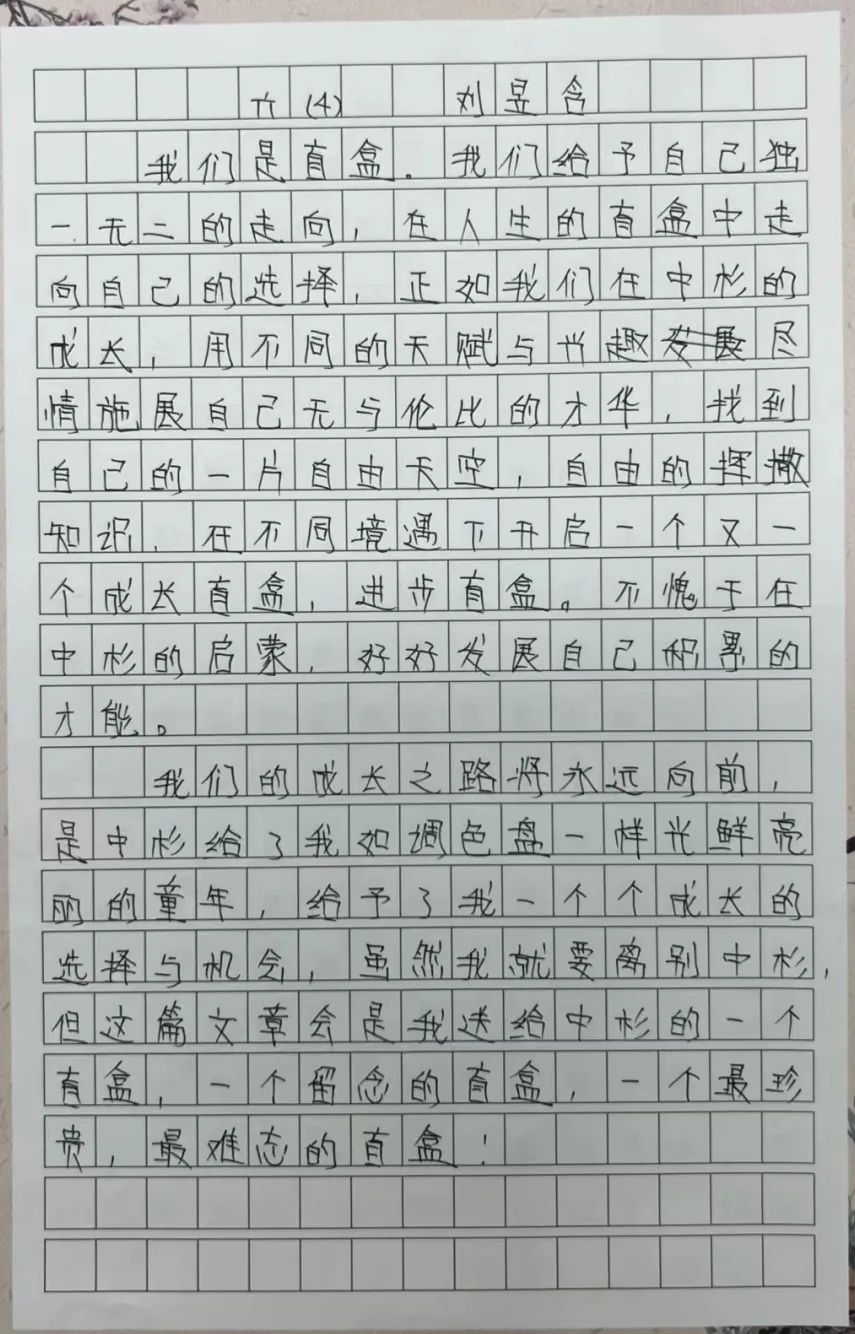 六(4) 刘昱含
我们是盲盒。我们给予自己独
一无二的走向，在人生的盲盒中走
向自己的选择，正如我们在中杉的
成长，用不同的天赋与兴趣发展尽
情施展自己无与伦比的才华，找到
自己的一片自由天空，自由的挥撒
知识，在不同境遇下开启一个又一
个成长盲盒，进步盲盒。不愧于在
中杉的启蒙，好好发展自己积累的
才能。
我们的成长之路将永远向前，
是中杉给了我如调色盘一样光鲜亮
丽的童年，给予了我一个个成长的
选择与机会，虽然我就要离别中杉，
但这篇文章会是我送给中杉的一个
盲盒，一个留念的盲盒，一个最珍
贵，最难忘的盲盒！